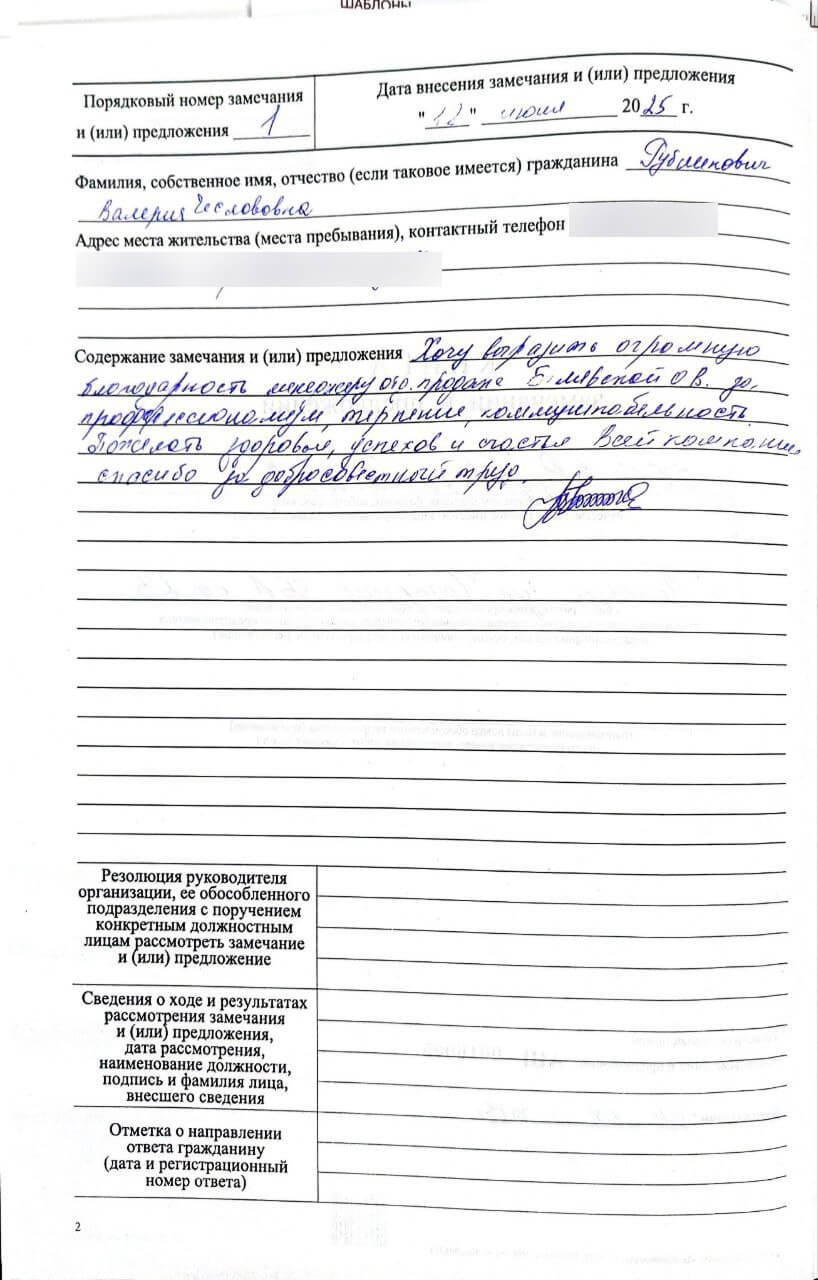 ШАБЛОНЫ
Порядковый номер замечания
и (или) предложения 1
Дата внесения замечания и (или) предложения
"12" июня 2025 г.
Фамилия, собственное имя, отчество (если таковое имеется) гражданина
Валерия Чеславовна
Адрес места жительства (места пребывания), контактный телефон
Содержание замечания и (или) предложения Хочу выразить огромную
благодарность менеджеру отд. продаж О.В. за
профессионализм, терпение, коммуникабельность.
Пожелать здоровья, успехов и счастья. Всей компании
спасибо за добросовестный труд.
Резолюция руководителя
организации, ее обособленного
подразделения с поручением
конкретным должностным
лицам рассмотреть замечание
и (или) предложение
Сведения о ходе и результатах
рассмотрения замечания
и (или) предложения,
дата рассмотрения,
наименование должности,
подпись и фамилия лица,
внесшего сведения
Отметка о направлении
ответа гражданину
(дата и регистрационный
номер ответа)
2